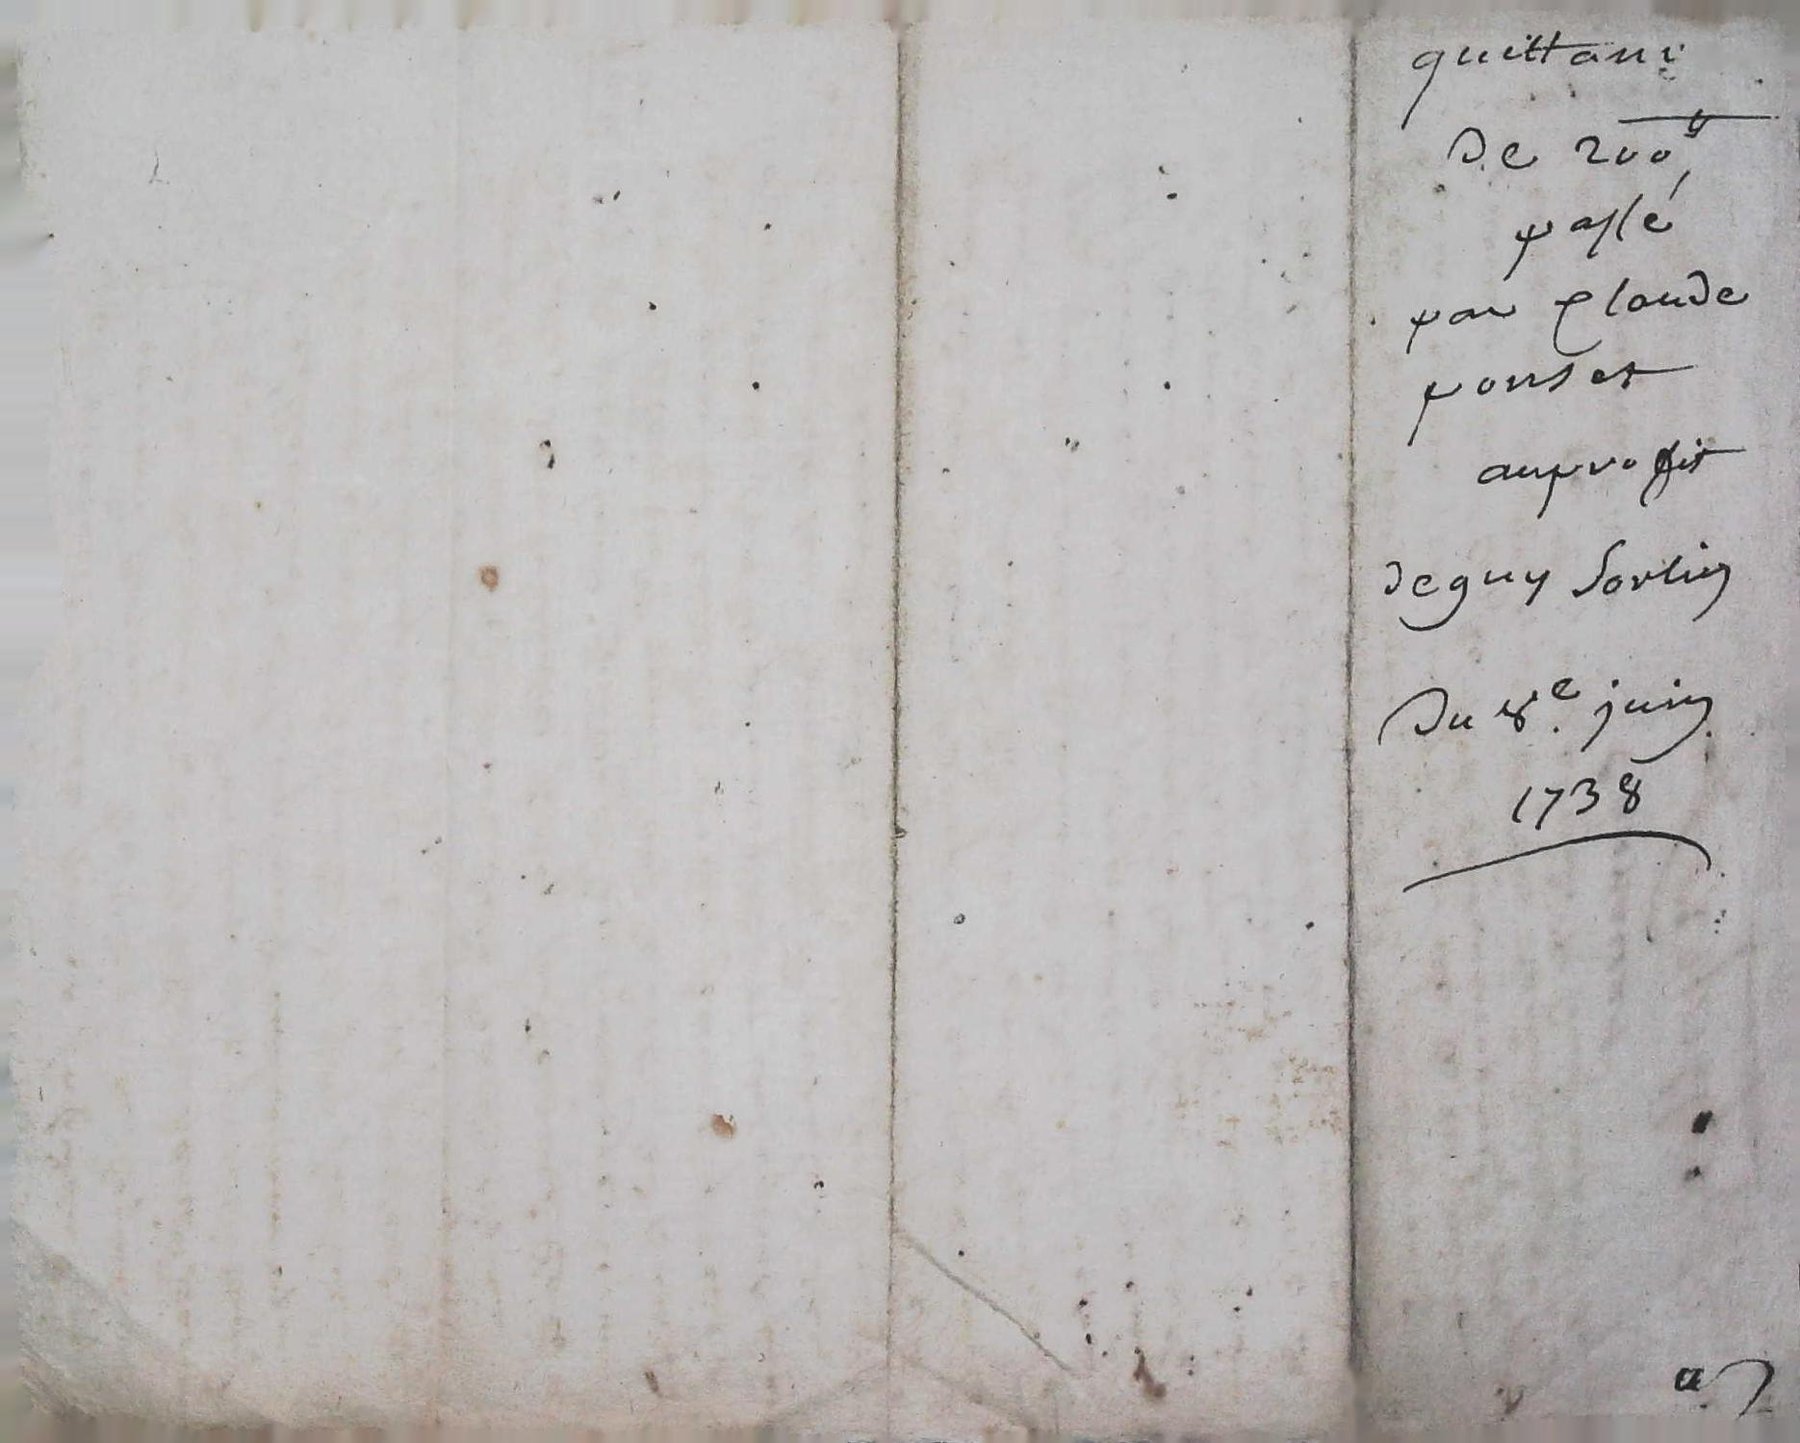 quittance
De 200lt
passé
par Claude
ponset
auprofit
deguy Sorlin
Du 8e. juin
1738